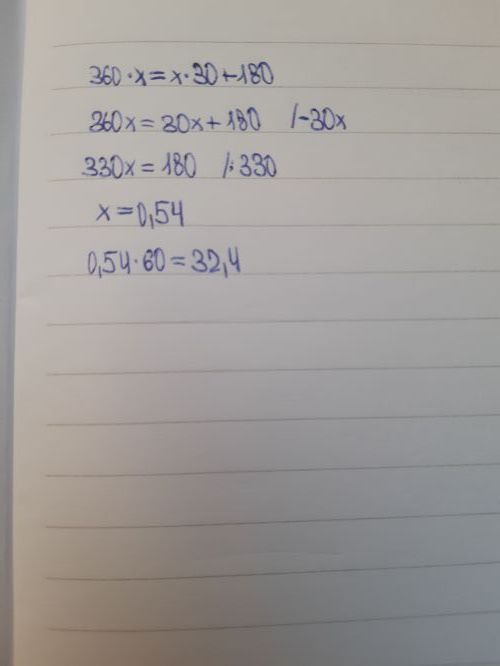 360·x=x·30+180
360x=30x+180 /-30x
330x=180 /:330
x=0,54
0,54·60=32,4